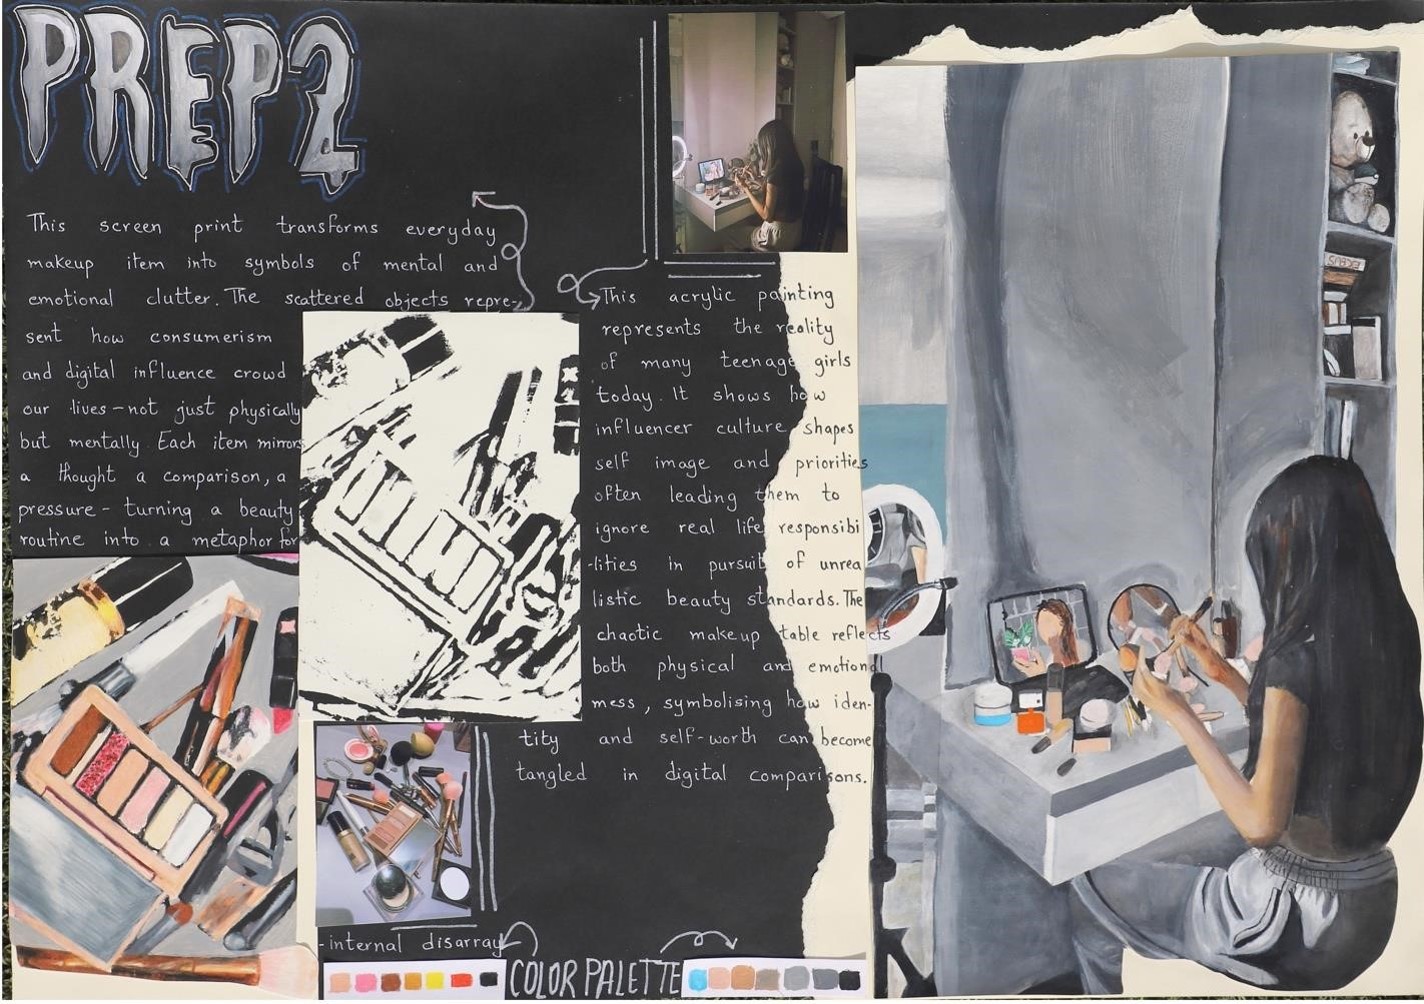 PREP2
This screen print transforms everyday
makeup item into symbols of mental and
emotional clutter. The scattered objects repre-
sent how consumerism
and digital influence crowd
our lives - not just physically
but mentally. Each item mirrors
a thought a comparison, a
pressure - turning a beauty
routine into a metaphor for
-internal disarray
This acrylic painting
represents the reality
of many teenage girls
today. It shows how
influencer culture shapes
self image and priorities
often leading them to
ignore real life responsibi
-lities in pursuit of unrea
listic beauty standards. The
chaotic makeup table reflects
both physical and emotional
mess, symbolising how iden-
tity and self-worth can become
tangled in digital comparisons.
COLOR PALETTE